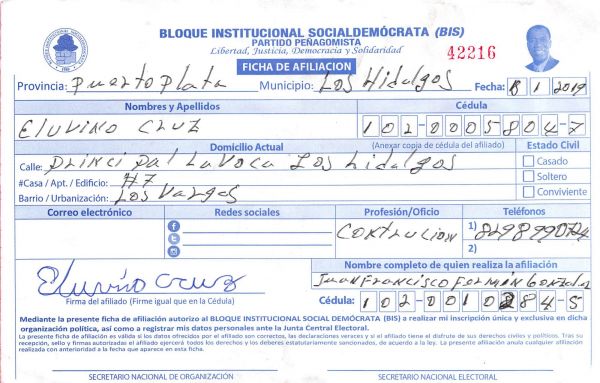 BLOQUE INSTITUCIONAL SOCIALDEMÓCRATA (BIS)
PARTIDO PEÑAGOMISTA
Libertad, Justicia, Democracia y Solidaridad
42216
FICHA DE AFILIACION
Provincia: Puerto Plata Municipio: Los Hidalgos Fecha: 8 1 2019
Nombres y Apellidos Cédula
Eluvino Cruz 102-0005804-7
Domicilio Actual (Anexar copia de cédula del afiliado) Estado Civil
Calle: Principal La Voca Los Hidalgos Casado
#Casa / Apt. / Edificio: #7 Soltero
Barrio / Urbanización: Los Vargas Conviviente
Correo electrónico Redes sociales Profesión/Oficio Teléfonos
Contrucion 1) 8298990724
2)
Eluvino Cruz
Nombre completo de quien realiza la afiliación
Juan Francisco Fermán Gonzalez
Firma del afiliado (Firme igual que en la Cédula) Cédula: 102-0010284-5
Mediante la presente ficha de afiliación autorizo al BLOQUE INSTITUCIONAL SOCIAL DEMÓCRATA (BIS) a realizar mi inscripción única y exclusiva en dicha
organización política, así como a registrar mis datos personales ante la Junta Central Electoral.
La presente ficha de afiliación es válida si los datos ofrecidos por el afiliado son correctos, las declaraciones veraces y si el afiliado tiene el disfrute de sus derechos civiles y políticos. Tras su
recepción, sello y firmas autorizadas el afiliado ejercerá todos los derechos y los deberes estatutariamente sancionados, de acuerdo a la ley. La presente afiliación anula cualquier afiliación
realizada con anterioridad a la fecha que aparece en esta ficha.
SECRETARIO NACIONAL DE ORGANIZACIÓN SECRETARIO NACIONAL ELECTORAL